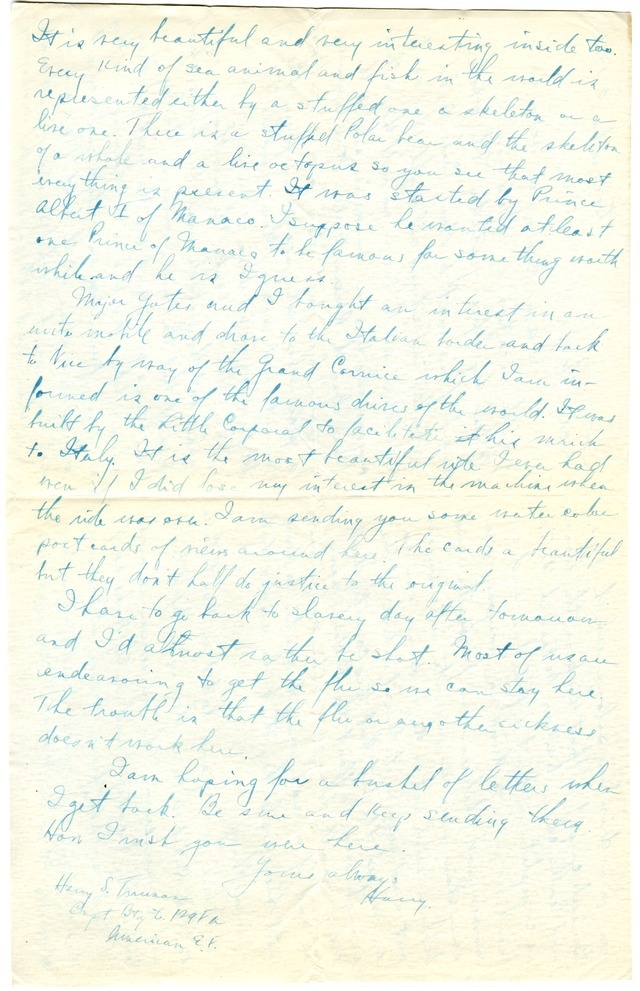 It is very beautiful and very interesting inside too.
Every kind of sea animal and fish in the world is
represented either by a stuffed one a skeleton or a
live one. There is a stuffed Polar bear and the skeleton
of a whale and a live octopus so you see that most
everything is present. It was started by Prince
Albert I of Monaco. I suppose he wanted at least
one Prince of Monaco to be famous for something worth
while and he is I guess.
Major Gates and I bought an interest in an
auto mobile and drove to the Italian border and back
to Nice by way of the Grand Cornice which I am in-
formed is one of the famous drives of the world. It was
built by the Little Corporal to facilitate his march
to Italy. It is the most beautiful ride I ever had
even if I did lose my interest in the machine when
the ride was over. I am sending you some water color
post cards of views around here. The cards a beautiful
but they don't half do justice to the original.
I have to go back to slavery day after tomorrow
and I'd almost rather be shot. Most of us are
endeavoring to get the flu so we can stay here.
The trouble is that the flu or any other sickness
doesn't work here.
I am hoping for a bushel of letters when
I get back. Be sure and keep sending them.
How I wish you were here.
Yours always
Harry.
Harry S. Truman
Capt Bty D. 129 FA
American E.F.